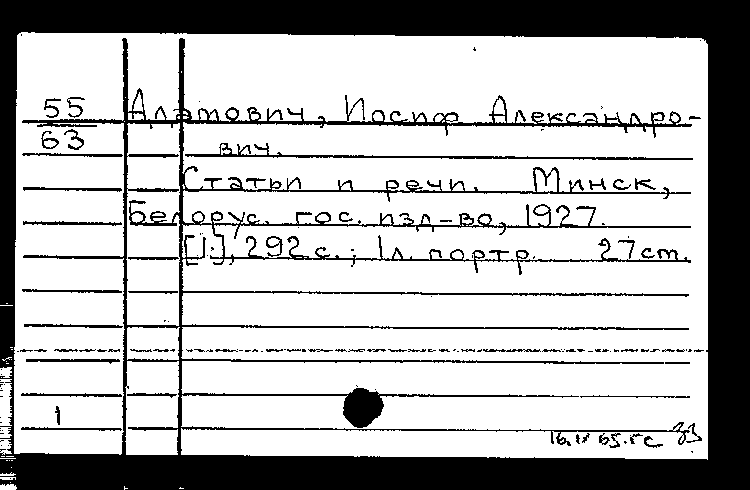 55 Адамович, Иосиф Александро-
63 вич.
Статьи и речи. Минск,
Белорус. гос. изд-во, 1927.
[1], 292 с.; 1 л. портр. 27 cm.
1